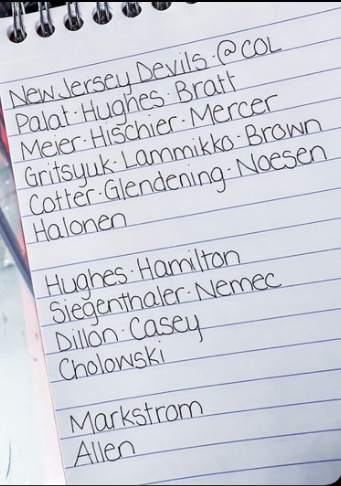 New Jersey Devils · @COL
Palat · Hughes · Bratt
Meier · Hischier · Mercer
Gritsyuk · Lammikko · Brown
Cotter · Glendening · Noesen
Halonen
Hughes · Hamilton
Siegenthaler · Nemec
Dillon · Casey
Cholowski
Markstrom
Allen